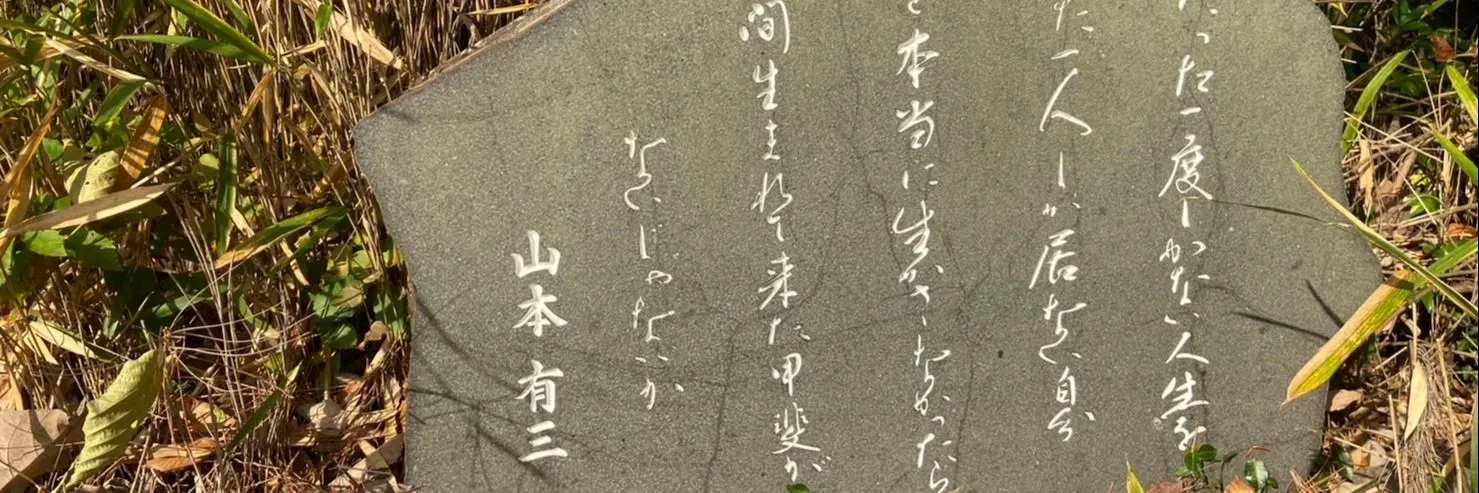 たった一度しかない人生を
た一人しか居ない自分
を本当に生かさなかったら
間生まれて来た甲斐が
ないじゃないか
山本 有三